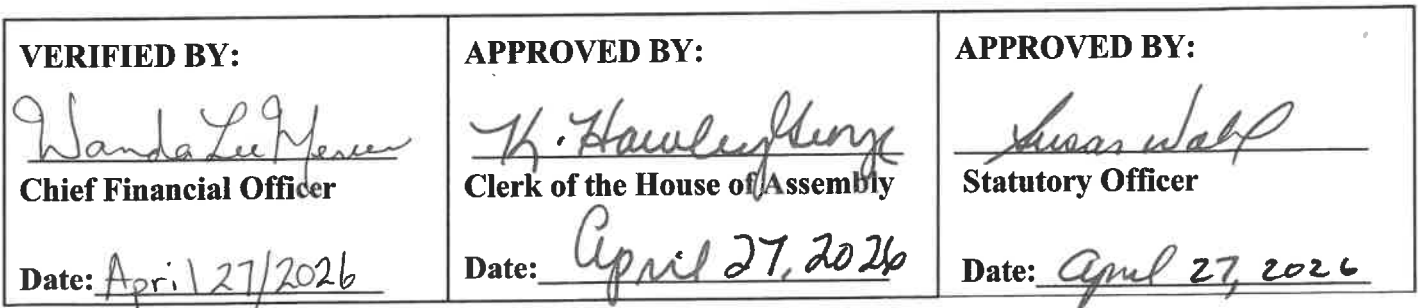 VERIFIED BY:
Wanda Lee Mercer
Chief Financial Officer
Date: April 27/2026
APPROVED BY:
K. Hawley George
Clerk of the House of Assembly
Date: April 27, 2026
APPROVED BY:
Susan Walsh
Statutory Officer
Date: April 27, 2026